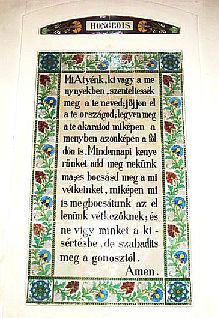 HONGROIS
Mi Atyánk, ki vagy a me
nynyekben, szenteltessék
meg a te neved; jöjjon el
a te országod; legyen meg
a te akaratod miképen a
menyben azonképen a föl
dön is. Mindennapi kenye
rünket add meg nekünk
ma; es bocsásd meg a mi
vétkeinket, miképen mi
is megbocsátunk az el
lenünk vétkezőknek; és
ne vigy minket a ki-
sértésbe, de szabadits
meg a gonosztol.
Amen.